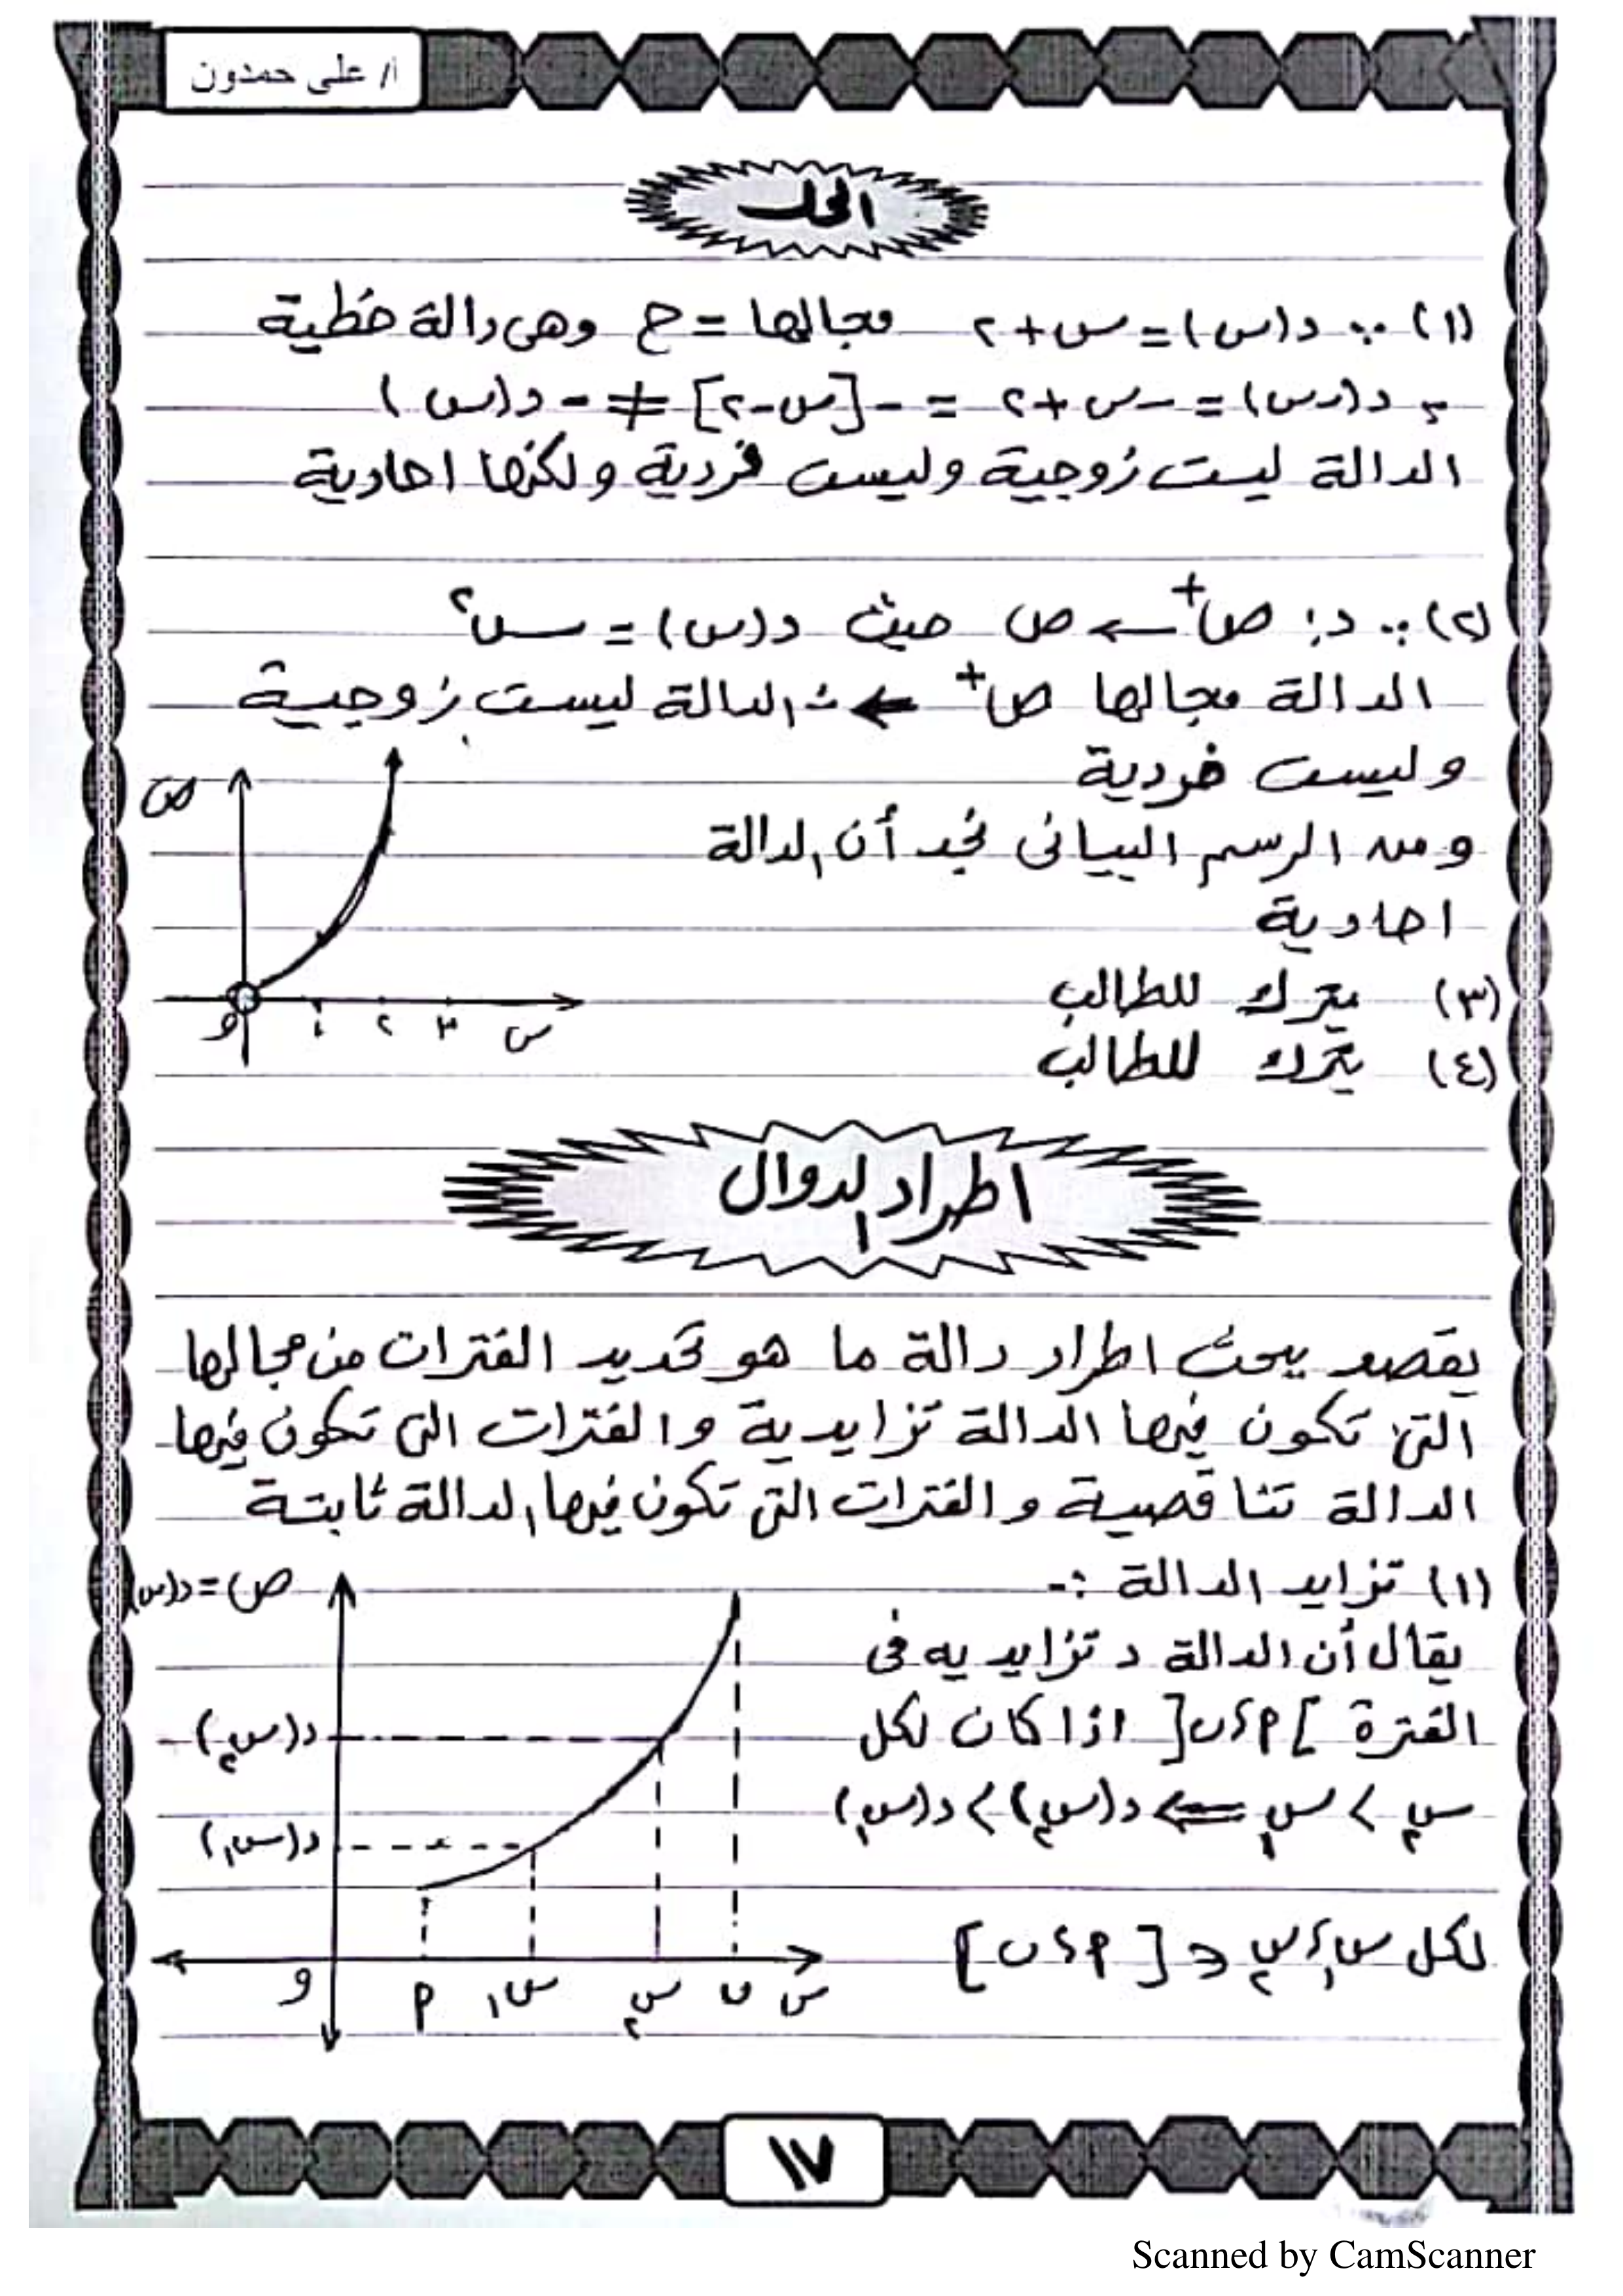 أ/ على حمدون
الحل
(١) ∵ د(س) = س + ٢ مجالها = ح وهى دالة خطية
، د(-س) = -س + ٢ = -[س - ٢] ≠ - د(س)
الدالة ليست زوجية وليست فردية ولكنها احادية
(٢) ∵ د: ص⁺ ← ص حيث د(س) = س²
الدالة مجالها ص⁺ ⇐ ∴ الدالة ليست زوجية
وليست فردية
ومن الرسم البيانى نجد أن الدالة
احادية
ص
و ١ ٢ ٣ س
(٣) يترك للطالب
(٤) يترك للطالب
اطراد الدوال
يقصد ببحث اطراد دالة ما هو تحديد الفترات من مجالها
التى تكون فيها الدالة تزايدية والفترات التى تكون فيها
الدالة تناقصية والفترات التى تكون فيها الدالة ثابتة
(١) تزايد الدالة :-
يقال أن الدالة د تزايديه فى
الفترة ]P، ب[ اذا كان لكل
س₂ > س₁ ⇐ د(س₂) > د(س₁)
لكل س₁، س₂ ∈ [P، ب]
ص = د(س)
د(س₂)
د(س₁)
و P س₁ س₂ ب س
١٧
Scanned by CamScanner